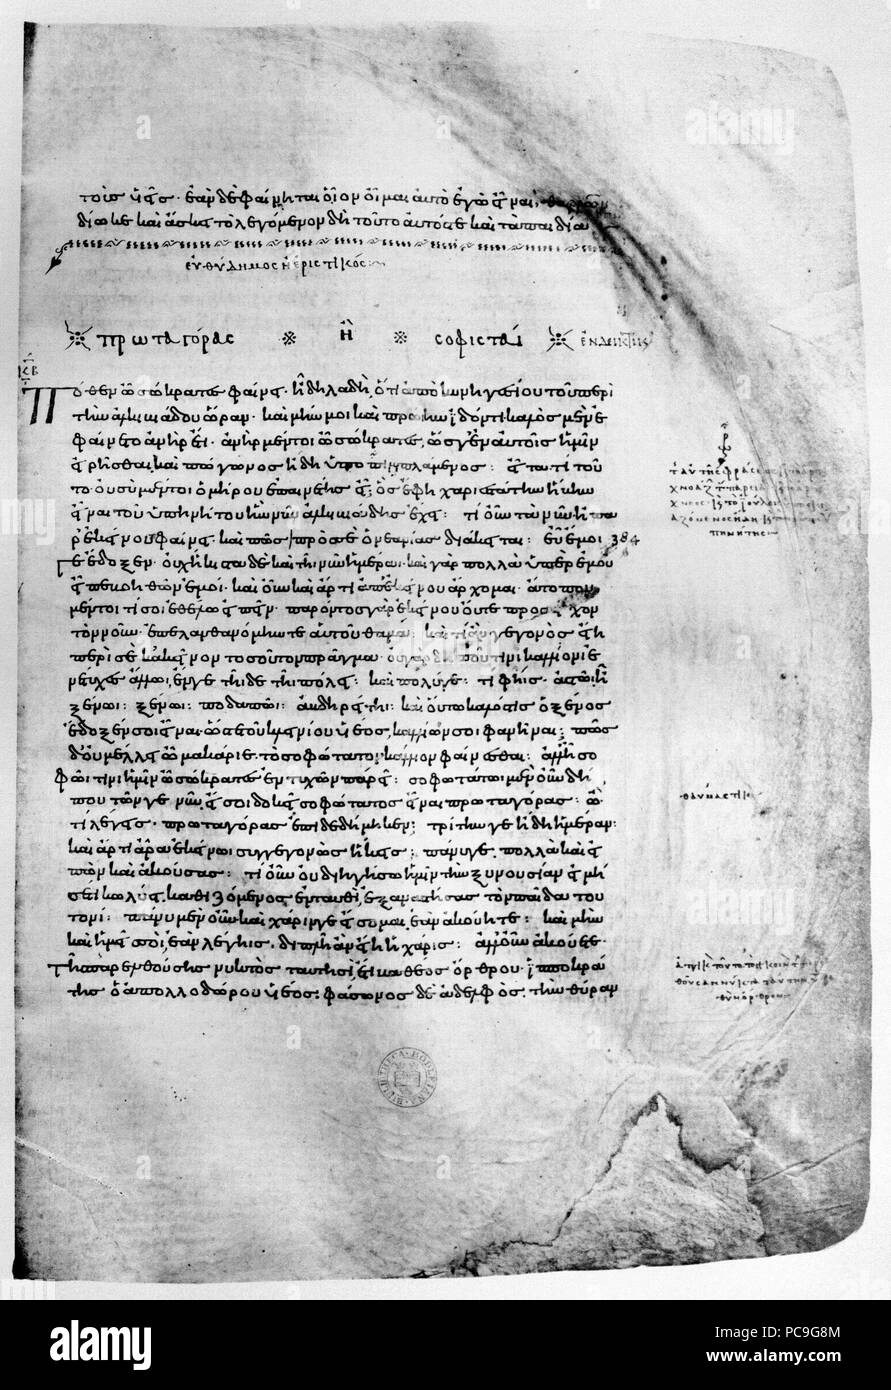 τοὺς ὑεῖς· ἐὰν δὲ φαίνηται οἷον οἶμαι αὐτὸ ἐγὼ εἶναι, θαρρῶν
δίωκε καὶ ἄσκει τὸ λεγόμενον δὴ τοῦτο αὐτός τε καὶ τὰ παιδία
εὐθύδημος ἢ ἐριστικός
πρωταγόρας ἢ σοφισταί ἐνδεικτικός
κβ
Πόθεν ὦ σώκρατες φαίνει· ἢ δηλαδὴ ὅτι ἀπὸ κυνηγεσίου τοῦ περὶ
τὴν ἀλκιβιάδου ὥραν· καὶ μήν μοι καὶ πρώην ἰδόντι καλὸς μὲν ἐ
φαίνετο ἀνὴρ ἔτι· ἀνὴρ μέντοι ὦ σώκρατες, ὥς γ' ἐν αὐτοῖς ἡμῖν
εἰρῆσθαι, καὶ πώγωνος ἤδη ὑποπιμπλάμενος: εἶτα τί τοῦ
το· οὐ σὺ μέντοι ὁμήρου ἐπαινέτης εἶ· ὃς ἔφη χαριεστάτην ἥβην
εἶναι τοῦ ὑπηνήτου ἣν νῦν ἀλκιβιάδης ἔχει: τί οὖν τὰ νῦν ἦ πα
ρ' ἐκείνου φαίνει· καὶ πῶς πρός σε ὁ νεανίας διάκειται: εὖ ἔμοι 384
γε ἔδοξεν· οὐχ ἥκιστα δὲ καὶ τῇ νῦν ἡμέραι· καὶ γὰρ πολλὰ ὑπὲρ ἐμοῦ
εἶπε βοηθῶν ἐμοί· καὶ οὖν καὶ ἄρτι ἀπ' ἐκείνου ἔρχομαι· ἄτοπον
μέντοι τί σοι ἐθέλω εἰπεῖν· παρόντος γὰρ ἐκείνου οὔτε προσεῖχον
τὸν νοῦν· ἐπελανθανόμην τε αὐτοῦ θαμά: καὶ τί ἂν γεγονὸς εἴη
περὶ σὲ κἀκεῖνον τοσοῦτον πρᾶγμα· οὐ γὰρ δήπου τινὶ καλλίονι ἐ
νέτυχες ἄλλωι, ἔν γε τῆιδε τῆι πόλει: καὶ πολύ γε: τί φής· ἀστῶι ἢ
ξένωι: ξένωι: ποδαπῶι: ἀβδηρίτηι: καὶ οὕτω καλός τις ὁ ξένος
ἔδοξέν σοι εἶναι· ὥστε τοῦ κλεινίου ὑέος, καλλίων σοι φανῆναι: πῶς
δ' οὐ μέλλει ὦ μακάριε· τὸ σοφώτατον, κάλλιον φαίνεσθαι: ἀλλ' ἦ σο
φῶι τινι ἡμῖν ὦ σώκρατες ἐντυχὼν πάρει: σοφωτάτωι μὲν οὖν δή
που τῶν γε νῦν, εἴ σοι δοκεῖ σοφώτατος εἶναι πρωταγόρας: ὢ
τί λέγεις· πρωταγόρας ἐπιδεδήμηκεν: τρίτην γε ἤδη ἡμέραν:
καὶ ἄρτι ἄρα ἐκείνωι συγγεγονὼς ἥκεις: πάνυ γε· πολλὰ καὶ εἰ
πὼν καὶ ἀκούσας: τί οὖν οὐ διηγήσω ἡμῖν τὴν ξυνουσίαν εἰ μή
σέ τι κωλύει, καθιζόμενος ἐνταυθί, ἐξαναστήσας τὸν παῖδα του
τονί: πάνυ μὲν οὖν καὶ χάριν γε εἴσομαι ἐὰν ἀκούητε: καὶ μὴν
καὶ ἡμεῖς σοί, ἐὰν λέγηις· διπλῆ ἂν εἴη ἡ χάρις: ἀλλ' οὖν ἀκούετε·
τῆς παρελθούσης νυκτὸς ταυτησί, ἔτι βαθέος ὄρθρου· ἱπποκρά
της ὁ ἀπολλοδώρου ὑέος· φάσωνος δὲ ἀδελφός· τὴν θύραν
ταύτης
πηνήτης
BIBLIOTHECA BODLEIANA
a alamy
alamy
Image ID: PC9G8M
www.alamy.com